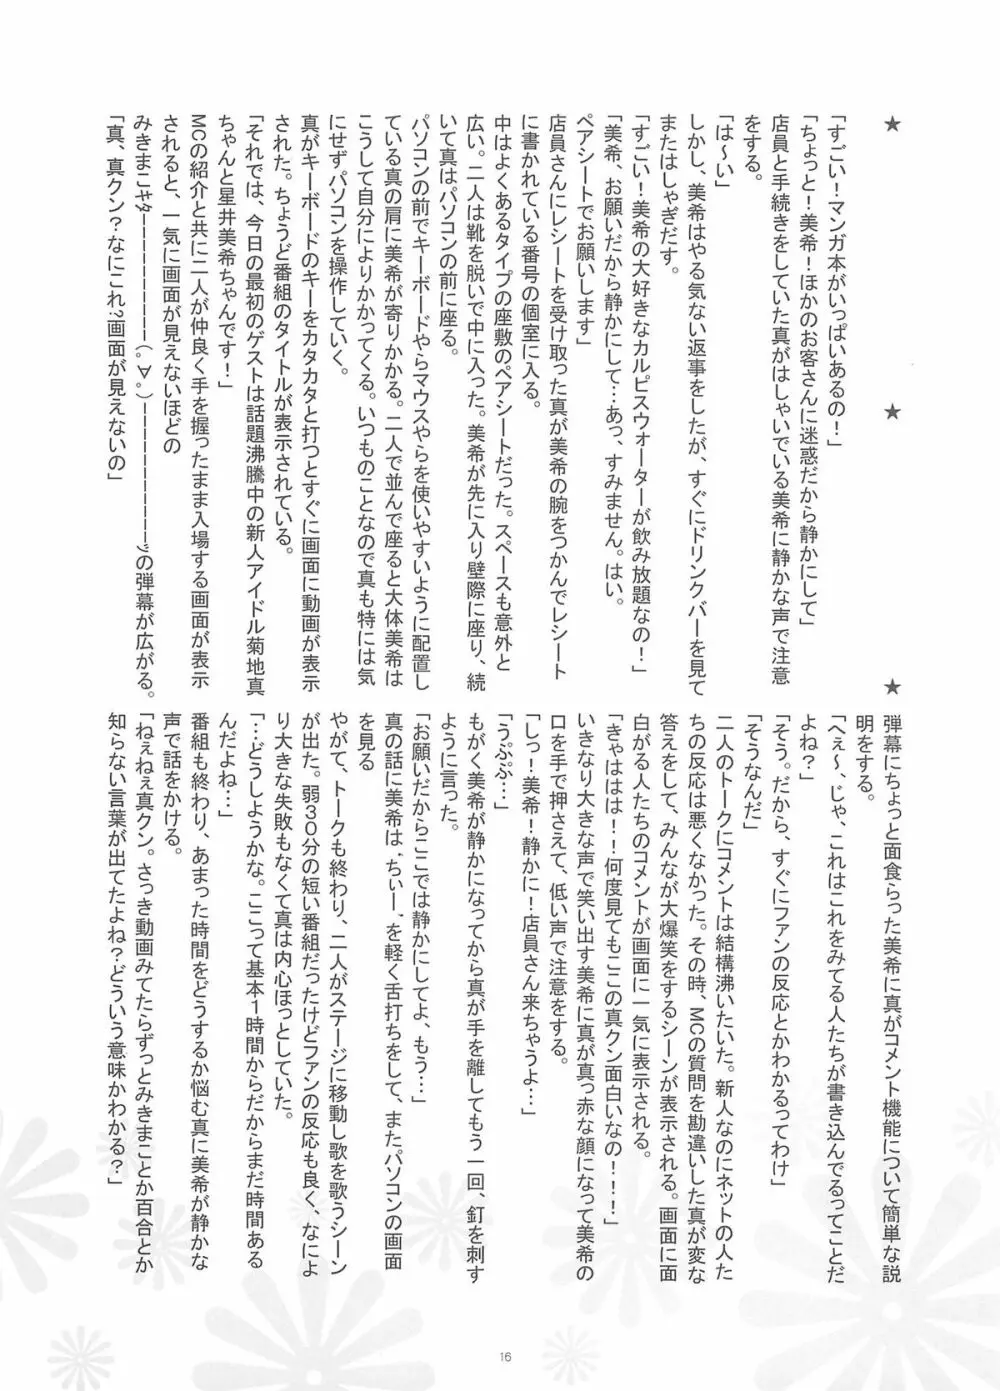 ★　★　★
「すごい！マンガ本がいっぱいあるの！」
「ちょっと！美希！ほかのお客さんに迷惑だから静かにして」
店員と手続きをしていた真がはしゃいでいる美希に静かな声で注意
をする。
「は～い」
しかし、美希はやる気ない返事をしたが、すぐにドリンクバーを見て
またはしゃぎだす。
「すごい！美希の大好きなカルピスウォーターが飲み放題なの！」
「美希、お願いだから静かにして…あっ、すみません。はい。
ペアシートでお願いします」
店員さんにレシートを受け取った真が美希の腕をつかんでレシート
に書かれている番号の個室に入る。
中はよくあるタイプの座敷のペアシートだった。スペースも意外と
広い。二人は靴を脱いで中に入った。美希が先に入り壁際に座り、続
いて真はパソコンの前に座る。
パソコンの前でキーボードやらマウスやらを使いやすいように配置し
ている真の肩に美希が寄りかかる。二人で並んで座ると大体美希は
こうして自分によりかかってくる。いつものことなので真も特には気
にせずパソコンを操作していく。
真がキーボードのキーをカタカタと打つとすぐに画面に動画が表示
された。ちょうど番組のタイトルが表示されている。
「それでは、今日の最初のゲストは話題沸騰中の新人アイドル菊地真
ちゃんと星井美希ちゃんです！」
MCの紹介と共に二人が仲良く手を握ったまま入場する画面が表示
されると、一気に画面が見えないほどの
みきまこｷﾀーーーーーーーーー(ﾟ∀ﾟ)ーーーーーーーーー!!の弾幕が広がる。
「真、真クン？なにこれ？画面が見えないの」
弾幕にちょっと面食らった美希に真がコメント機能について簡単な説
明をする。
「へぇ～、じゃ、これはこれをみてる人たちが書き込んでるってことだ
よね？」
「そう。だから、すぐにファンの反応とかわかるってわけ」
「そうなんだ」
二人のトークにコメントは結構沸いたいた。新人なのにネットの人た
ちの反応は悪くなかった。その時、MCの質問を勘違いした真が変な
答えをして、みんなが大爆笑をするシーンが表示される。画面に面
白がる人たちのコメントが画面に一気に表示される。
「きゃははは！！何度見てもここの真クン面白いなの！！！」
いきなり大きな声で笑い出す美希に真が真っ赤な顔になって美希の
口を手で押さえて、低い声で注意をする。
「しっ！美希！静かに！店員さん来ちゃうよ…」
「うぷぷ…」
もがく美希が静かになってから真が手を離してもう一回、釘を刺す
ように言った。
「お願いだからここでは静かにしてよ、もう…」
真の話に美希は、“ちぃー”、を軽く舌打ちをして、またパソコンの画面
を見る
やがて、トークも終わり、二人がステージに移動し歌を歌うシーン
が出た。弱30分の短い番組だったけどファンの反応も良く、なによ
り大きな失敗もなくて真は内心ほっとしていた。
「…どうしようかな。ここって基本1時間からだからまだ時間ある
んだよね…」
番組も終わり、あまった時間をどうするか悩む真に美希が静かな
声で話をかける。
「ねぇねぇ真クン。さっき動画みてたらずっとみきまことか百合とか
知らない言葉が出てたよね？どういう意味かわかる？」
16